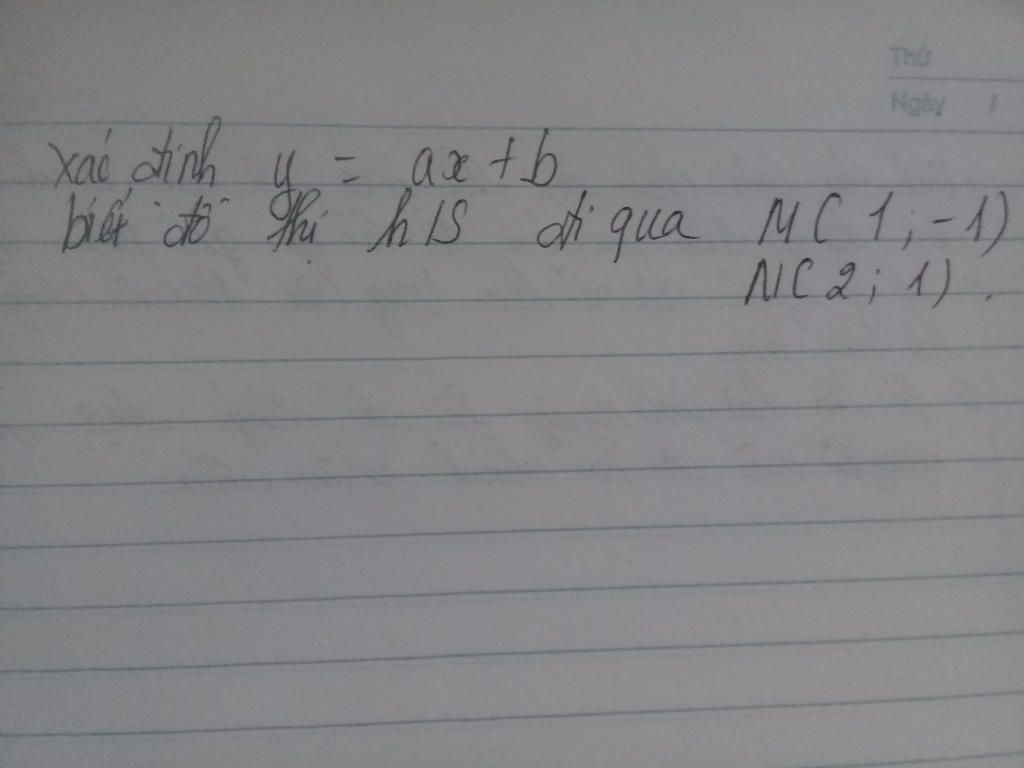 Thứ
Ngày /
xác định y = ax + b
biết đồ thị h/s đi qua M( 1 ; -1)
N( 2 ; 1) .